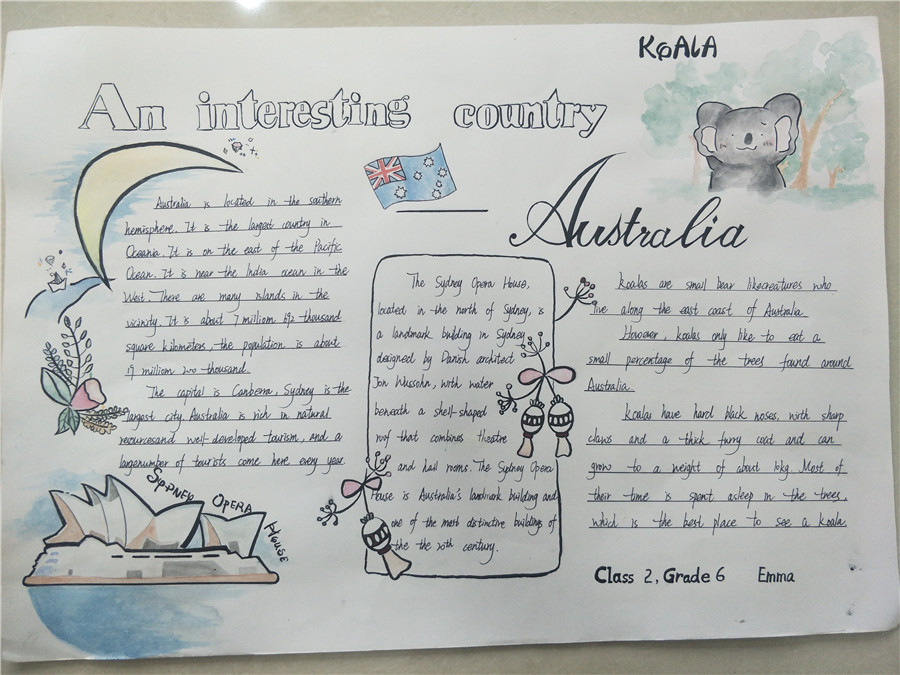 KOALA
An interesting country
Australia
Australia is located in the southern
hemisphere. It is the largest country in
Oceania. It is on the east of the Pacific
Ocean. It is near the India ocean in the
West. There are many islands in the
vicinity. It is about 7 milliom 692 thousand
square kilometers, the population is about
19 milliom 200 thousand.
The capital is Canberra, Sydney is the
largest city. Australia is rich in natural
resourcesand well-developed tourism, and a
largenumber of tourists come here every year
SYDNEY OPERA HOUSE
The Sydney Opera House,
located in the north of Sydney, is
a landmark building in Sydney
designed by Danish architect
Jon Wussohn, with water
beneath a shell-shaped
roof that combines theatre
and hail rooms. The Sydney Opera
House is Australia's landmark building and
one of the most distinctive buildings of
the the 20th century.
koalas are small bear likecreatures who
live along the east coast of Australia
However, koalas only like to eat a
small percentage of the trees found around
Australia.
koalas have hard black noses, with sharp
claws and a thick furry coat and can
grow to a weight of about 10kg. Most of
their time is spent asleep in the trees,
which is the best place to see a koala
Class 2, Grade 6 Emma